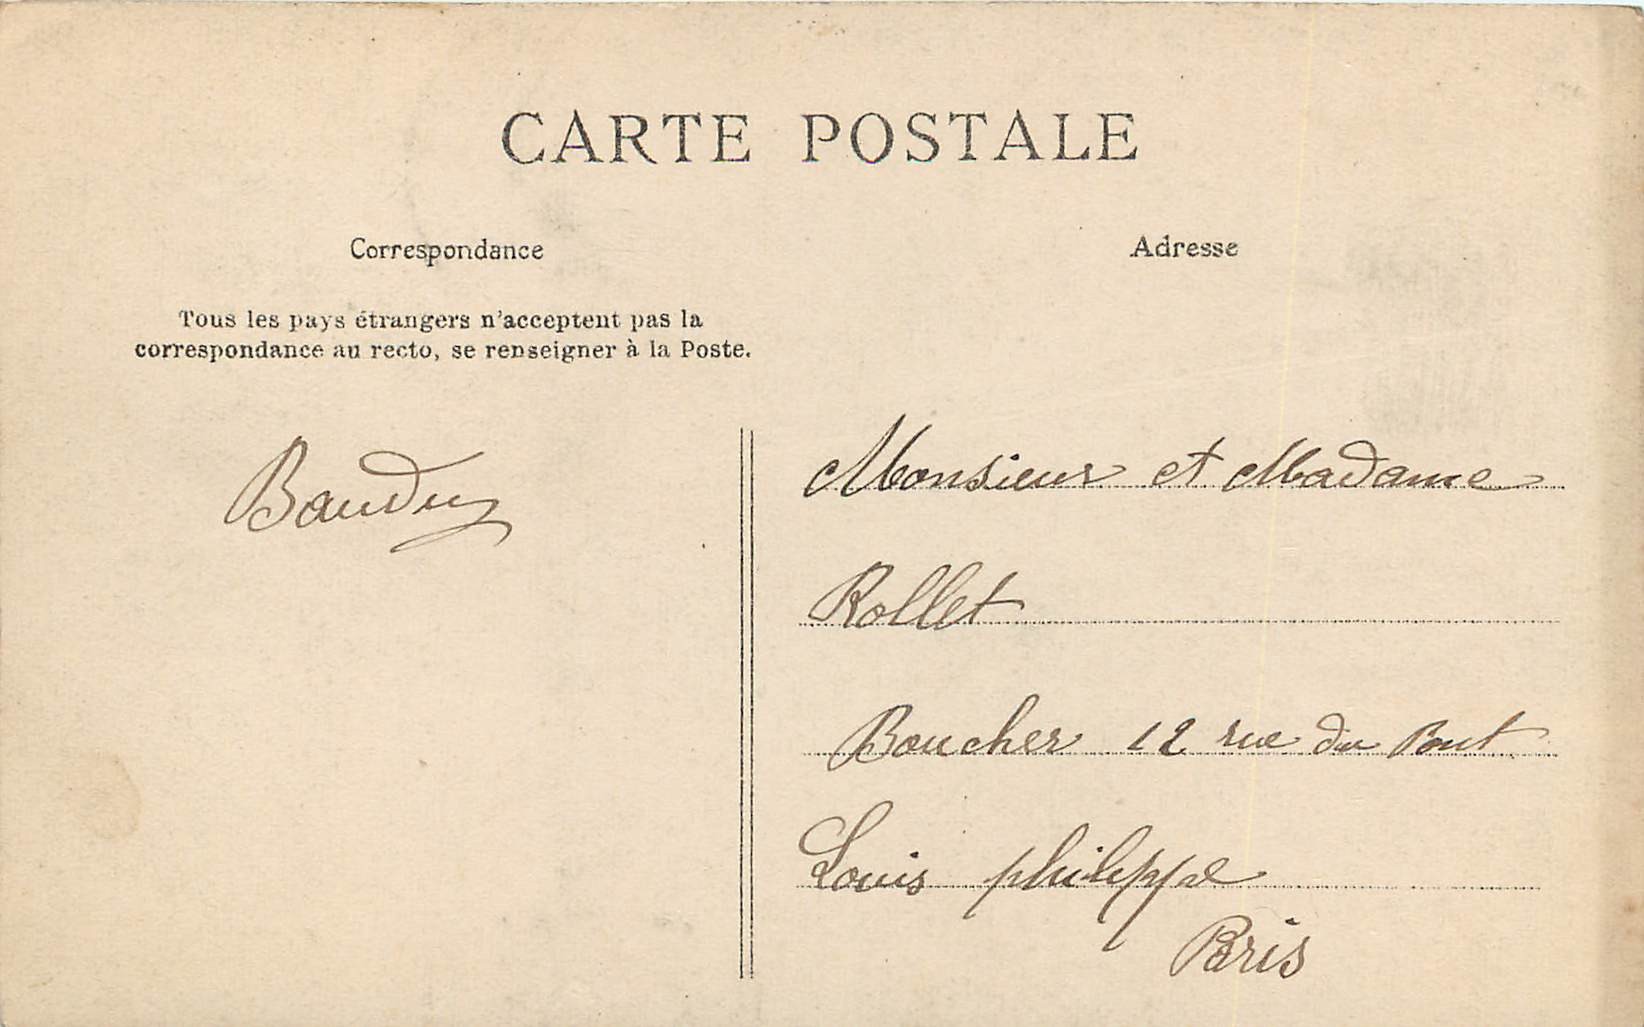 CARTE POSTALE
Correspondance
Adresse
Tous les pays étrangers n'acceptent pas la
correspondance au recto, se renseigner à la Poste.
Monsieur et Madame
Rollet
Boucher 12 rue du Pont
Louis philippe
Paris